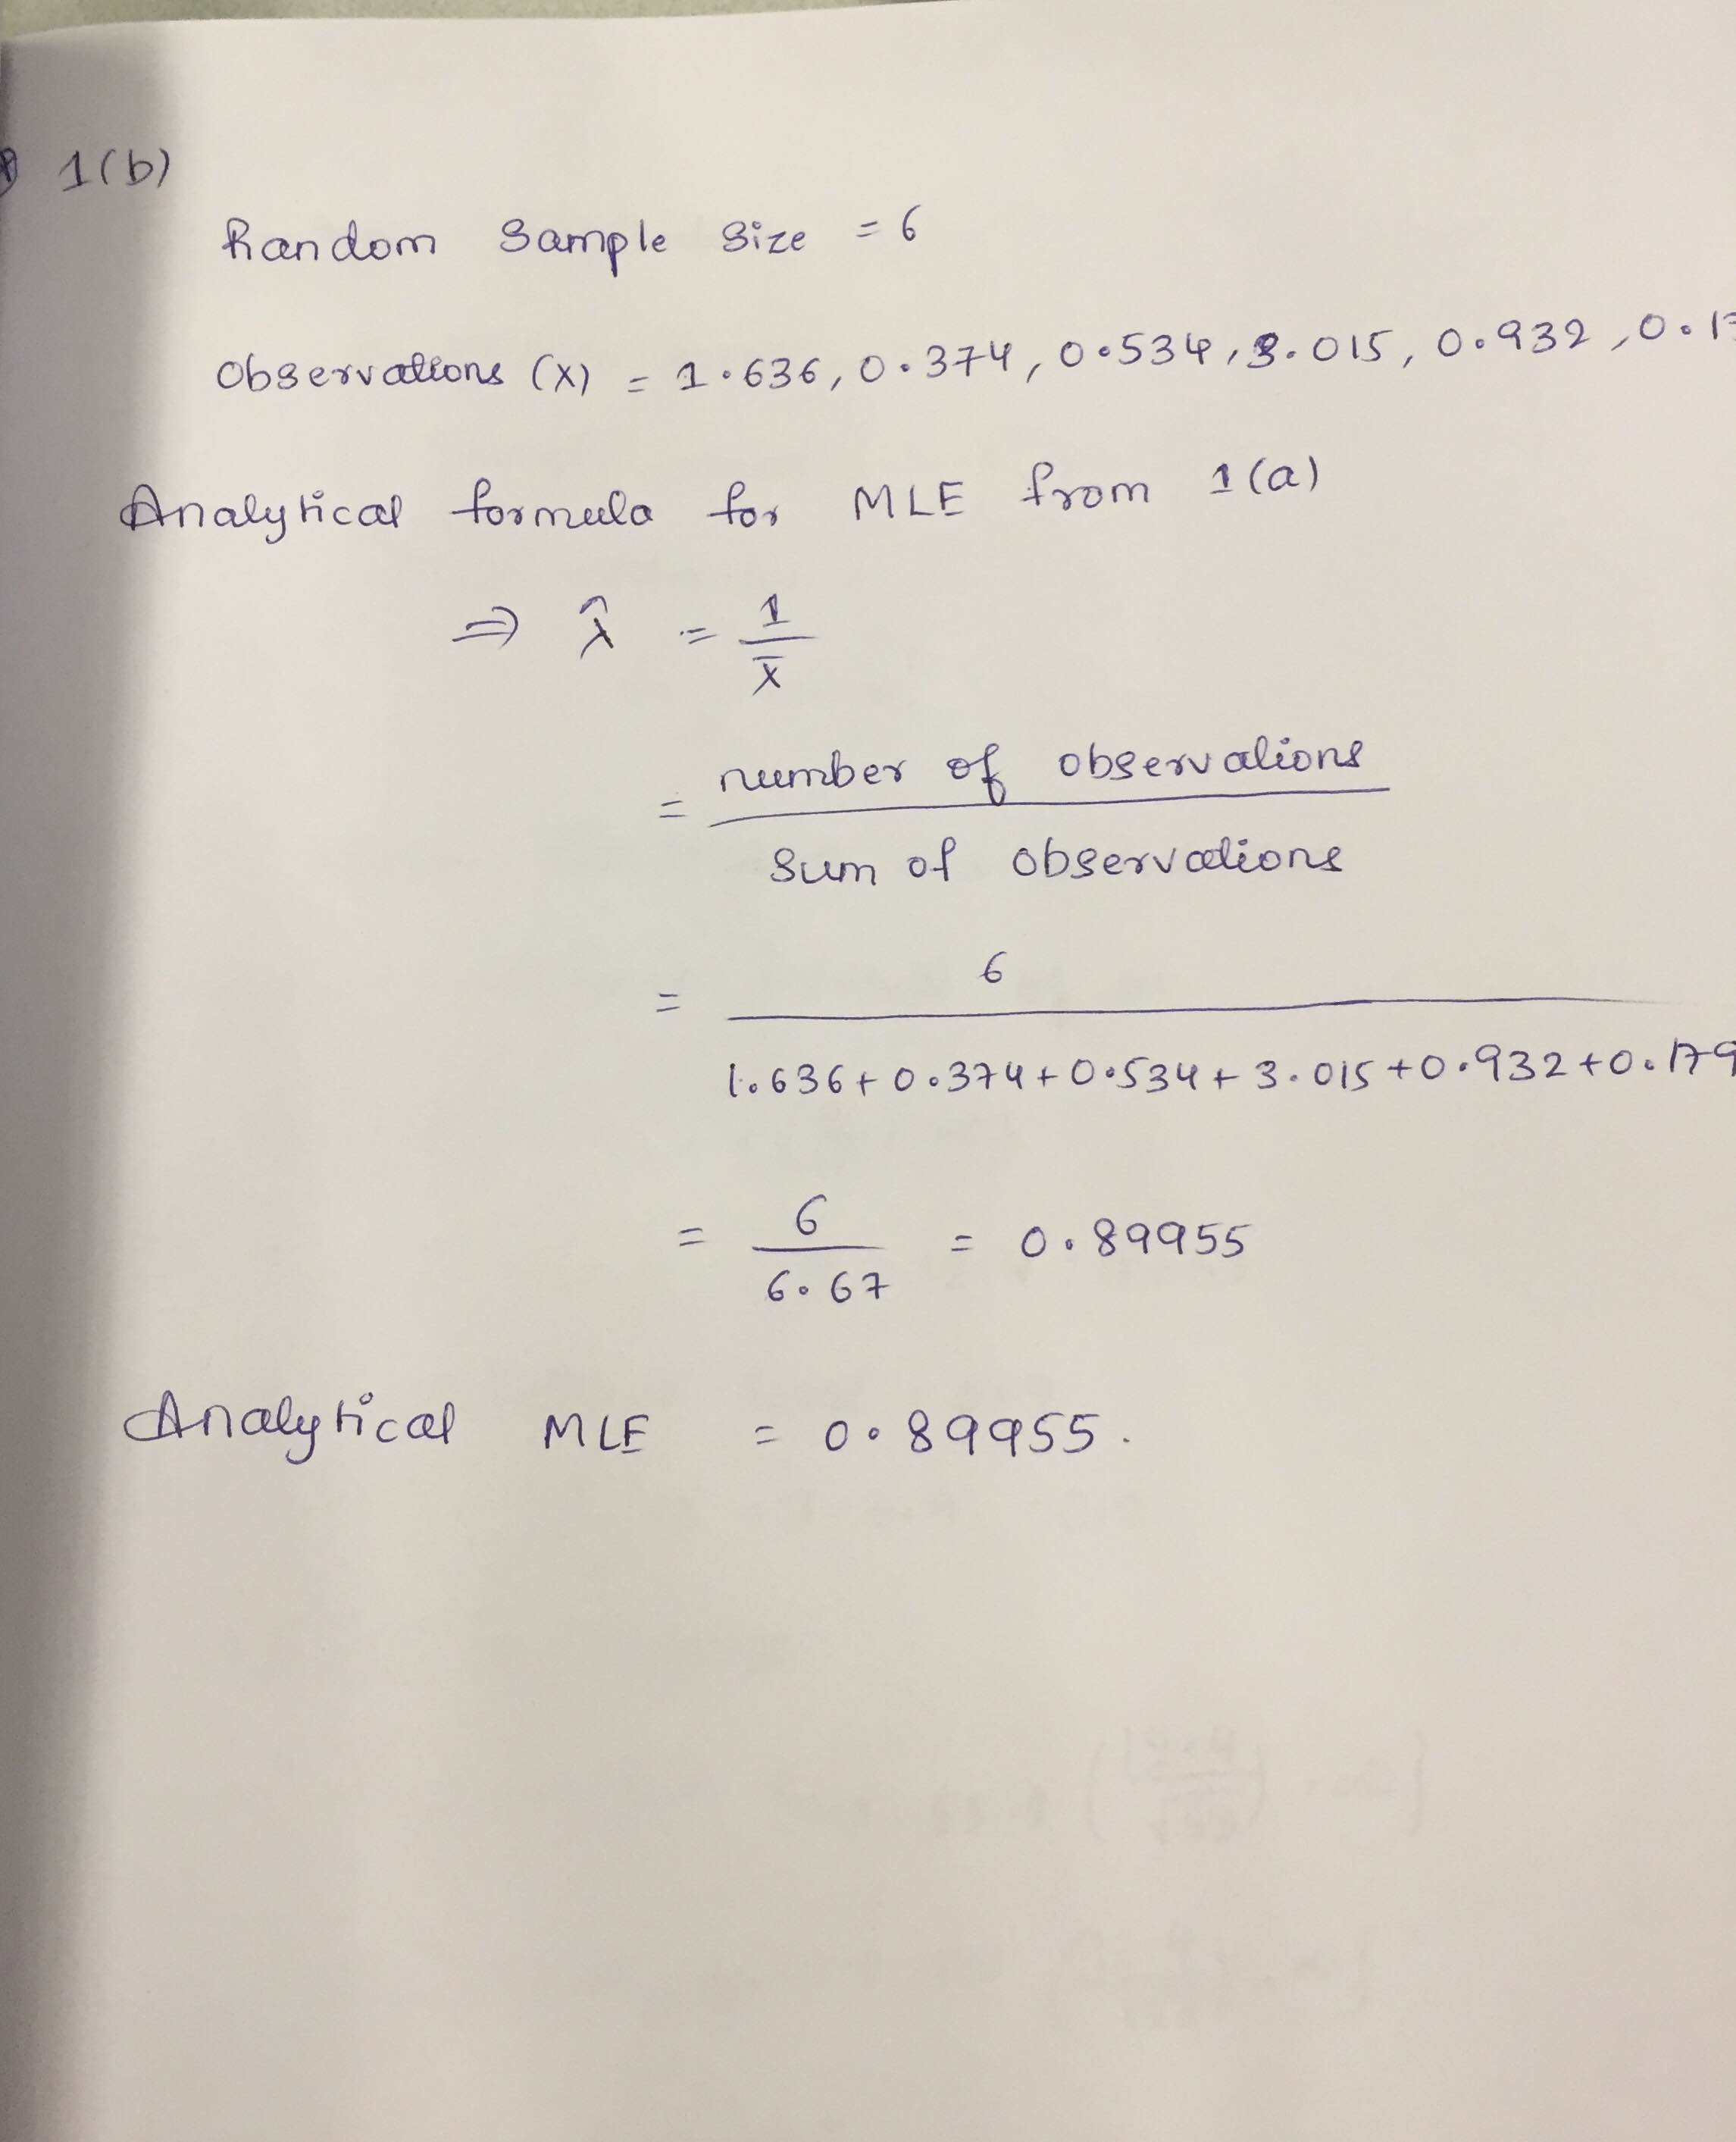 1(b)
Random Sample Size = 6
Observations (X) = 1.636, 0.374, 0.534, 3.015, 0.932, 0.17
Analytical formula for MLE from 1(a)
⇒ λ̂ = 1/X̄
= number of observations / Sum of observations
= 6 / 1.636 + 0.374 + 0.534 + 3.015 + 0.932 + 0.179
= 6/6.67 = 0.89955
Analytical MLE = 0.89955.